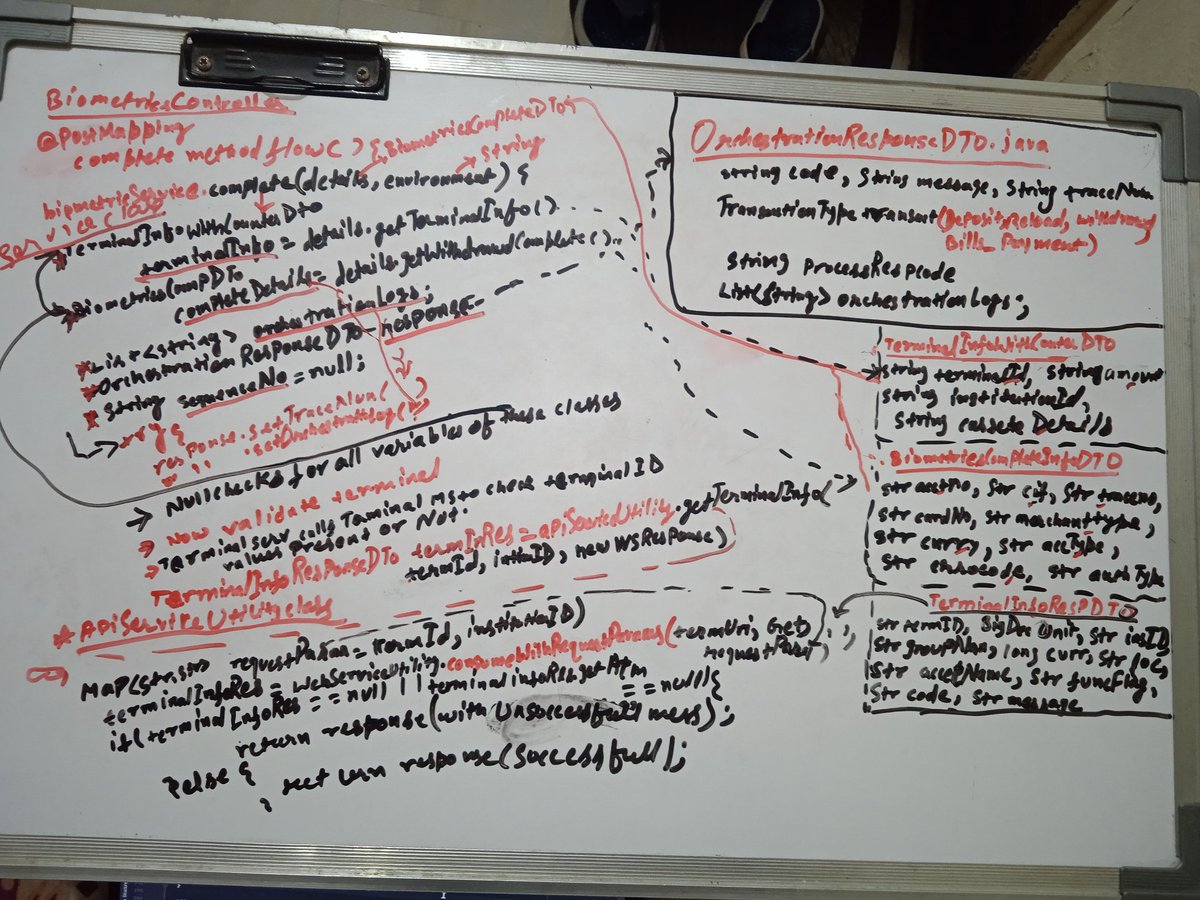 BiometricsController
@PostMapping
complete method flow( ) { BiometricsCompleteDTO
String
biometricService.complete(details, environment) {
Service class
TerminalInfoWithCounterDto
terminalInfo = details.getTerminalInfo().
BiometricsCompDTo
completeDetails = details.getWithdrawalComplete().
List<string> orchestrationLogs;
Orchestration ResponseDTO - response -
String sequenceNo = null;
try {
response.setTraceNum(
" " .setOrchestrationLog( )
Null checks for all variables of these classes
Now validate termined
Terminal serv calls Terminal MS to check terminal ID
values present or Not.
TerminalInfoResponseDTO termInRes = apiServiceUtility.getTerminalInfo(
termId, instnID, new WSResponse)
* ApiServiceUtility class
Map(str,str) requestParam = termId, institutionID)
terminalInfoRes = WebServiceUtility.consumeWithRequestParams(termUri, Get(),
requestParam)
if(terminalInfoRes == null || terminalInfoRes.getAtm
== null){
return response(with Unsuccessfull mess);
}else {
return response(Successfull);
OrchestrationResponseDTO.java
string code, String message, String traceNum
TransactionType transact(Deposit, Reload, withdrawal,
Bills_Payment)
String processRespcode
List(String> orchestrationLogs;
TerminalInfoWithCounterDTO
string terminalId, string amount
string institutionId,
String cassete Details
BiometricsCompleteInfoDTO
str acctNo, Str cif, Str traceno,
str cardNo, str merchanttype,
str curry, str accType,
str authType
TerminalInfoResPDTO
str termID, BigDec Unit, str insID,
Str groupNum, long curr, str loc,
Str acceptName, Str funcFlag,
Str code, str message